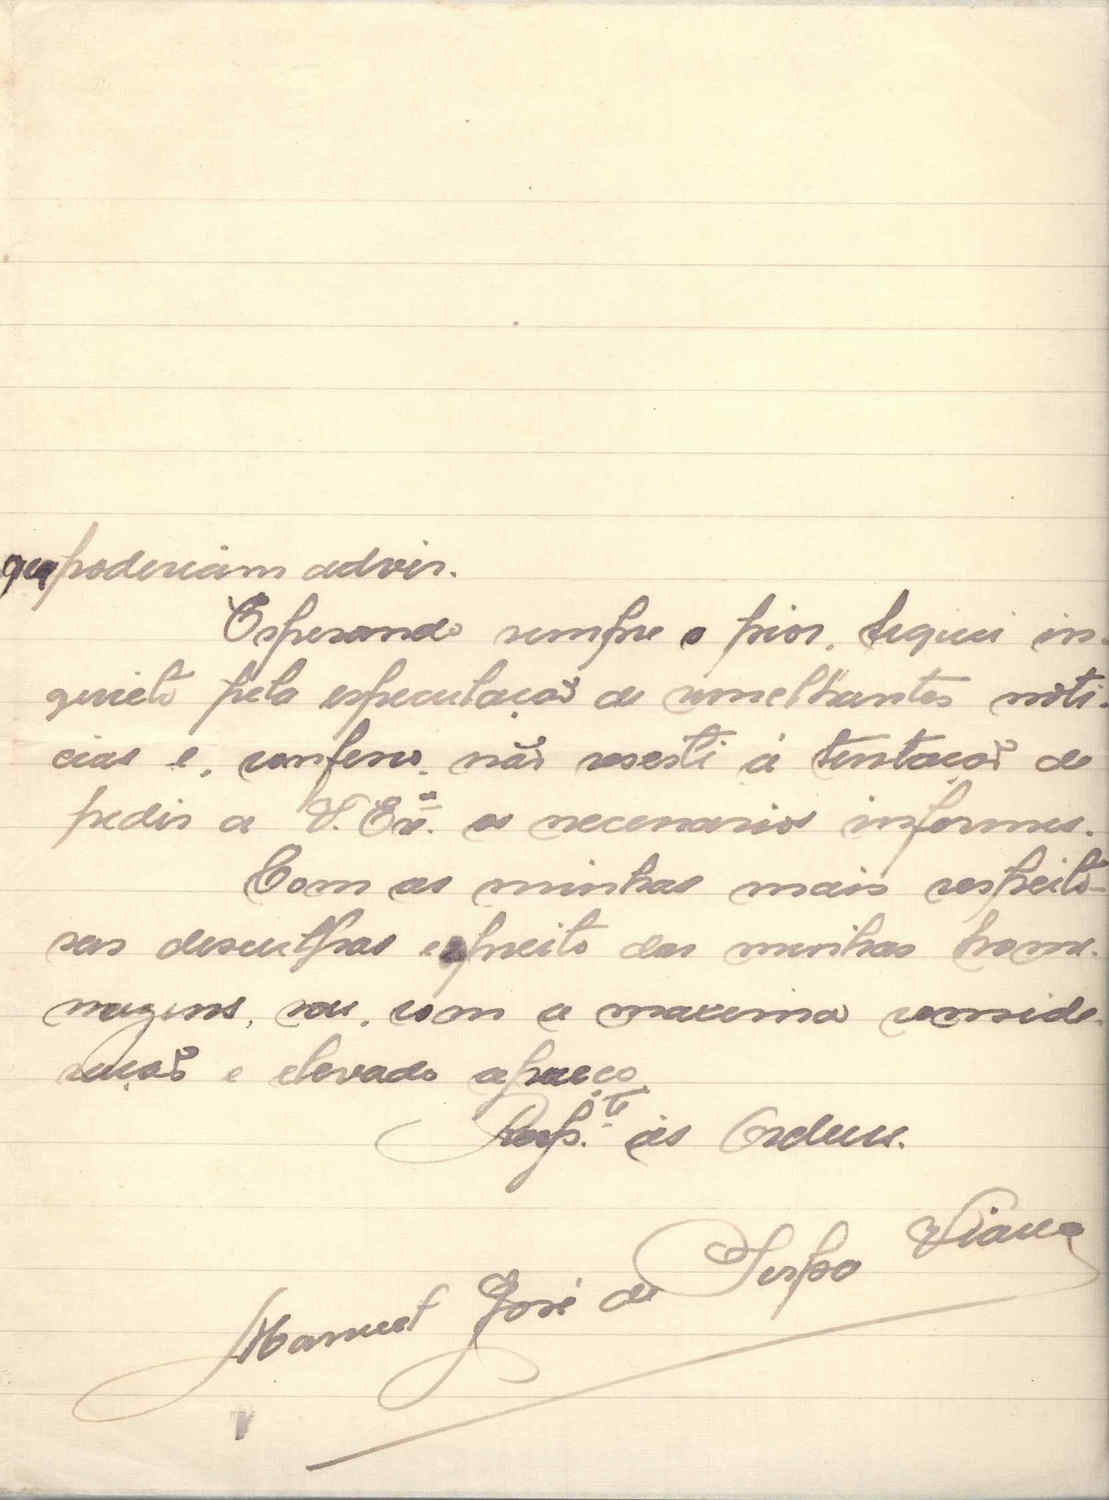 que poderiam advir.
Esperando sempre o pior, fiquei in-
quieto pela especulação de semelhantes noti-
cias e, confesso, não resesti á tentação de
pedir a V. Exª. os necessarios informes.
Com as minhas mais respeito-
sas desculpas e preito das minhas home-
nagens, sou, com a maxima conside-
ração e elevado apreço
Resp.te ás Ordens.
Manuel José de Serpa Viana